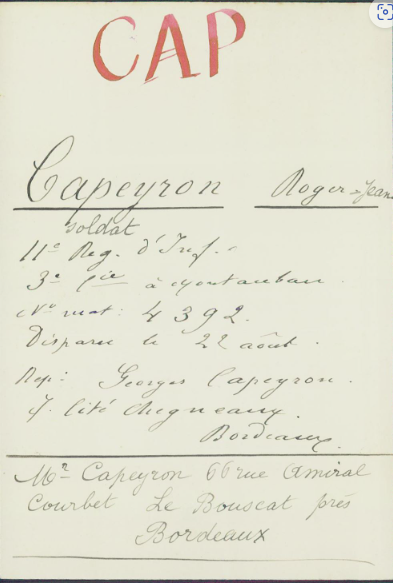 CAP
Capeyron Roger-Jean
soldat
11e Reg. d'Inf.
3e Cie à Montauban.
No mat: 4392.
Disparu le 22 août.
Rep: Georges Capeyron.
7. Cité Chegneaux.
Bordeaux.
Mr Capeyron 66 rue Amiral
Courbet Le Bouscat près
Bordeaux